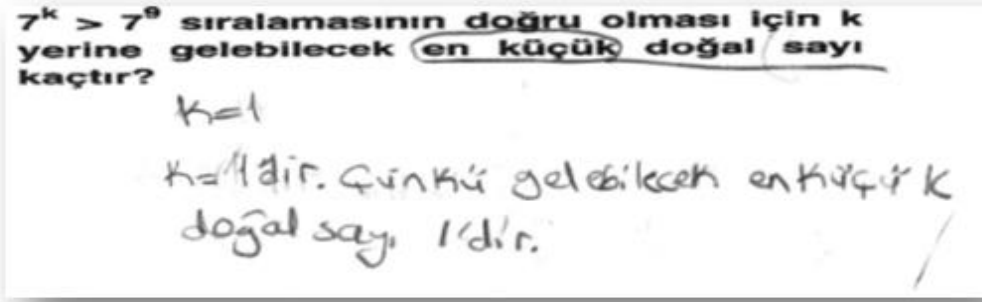 7ᵏ > 7⁹ sıralamasının doğru olması için k
yerine gelebilecek en küçük doğal sayı
kaçtır?
k=1
k=1'dir. Çünkü gelebilecek en küçük
doğal sayı 1'dir.